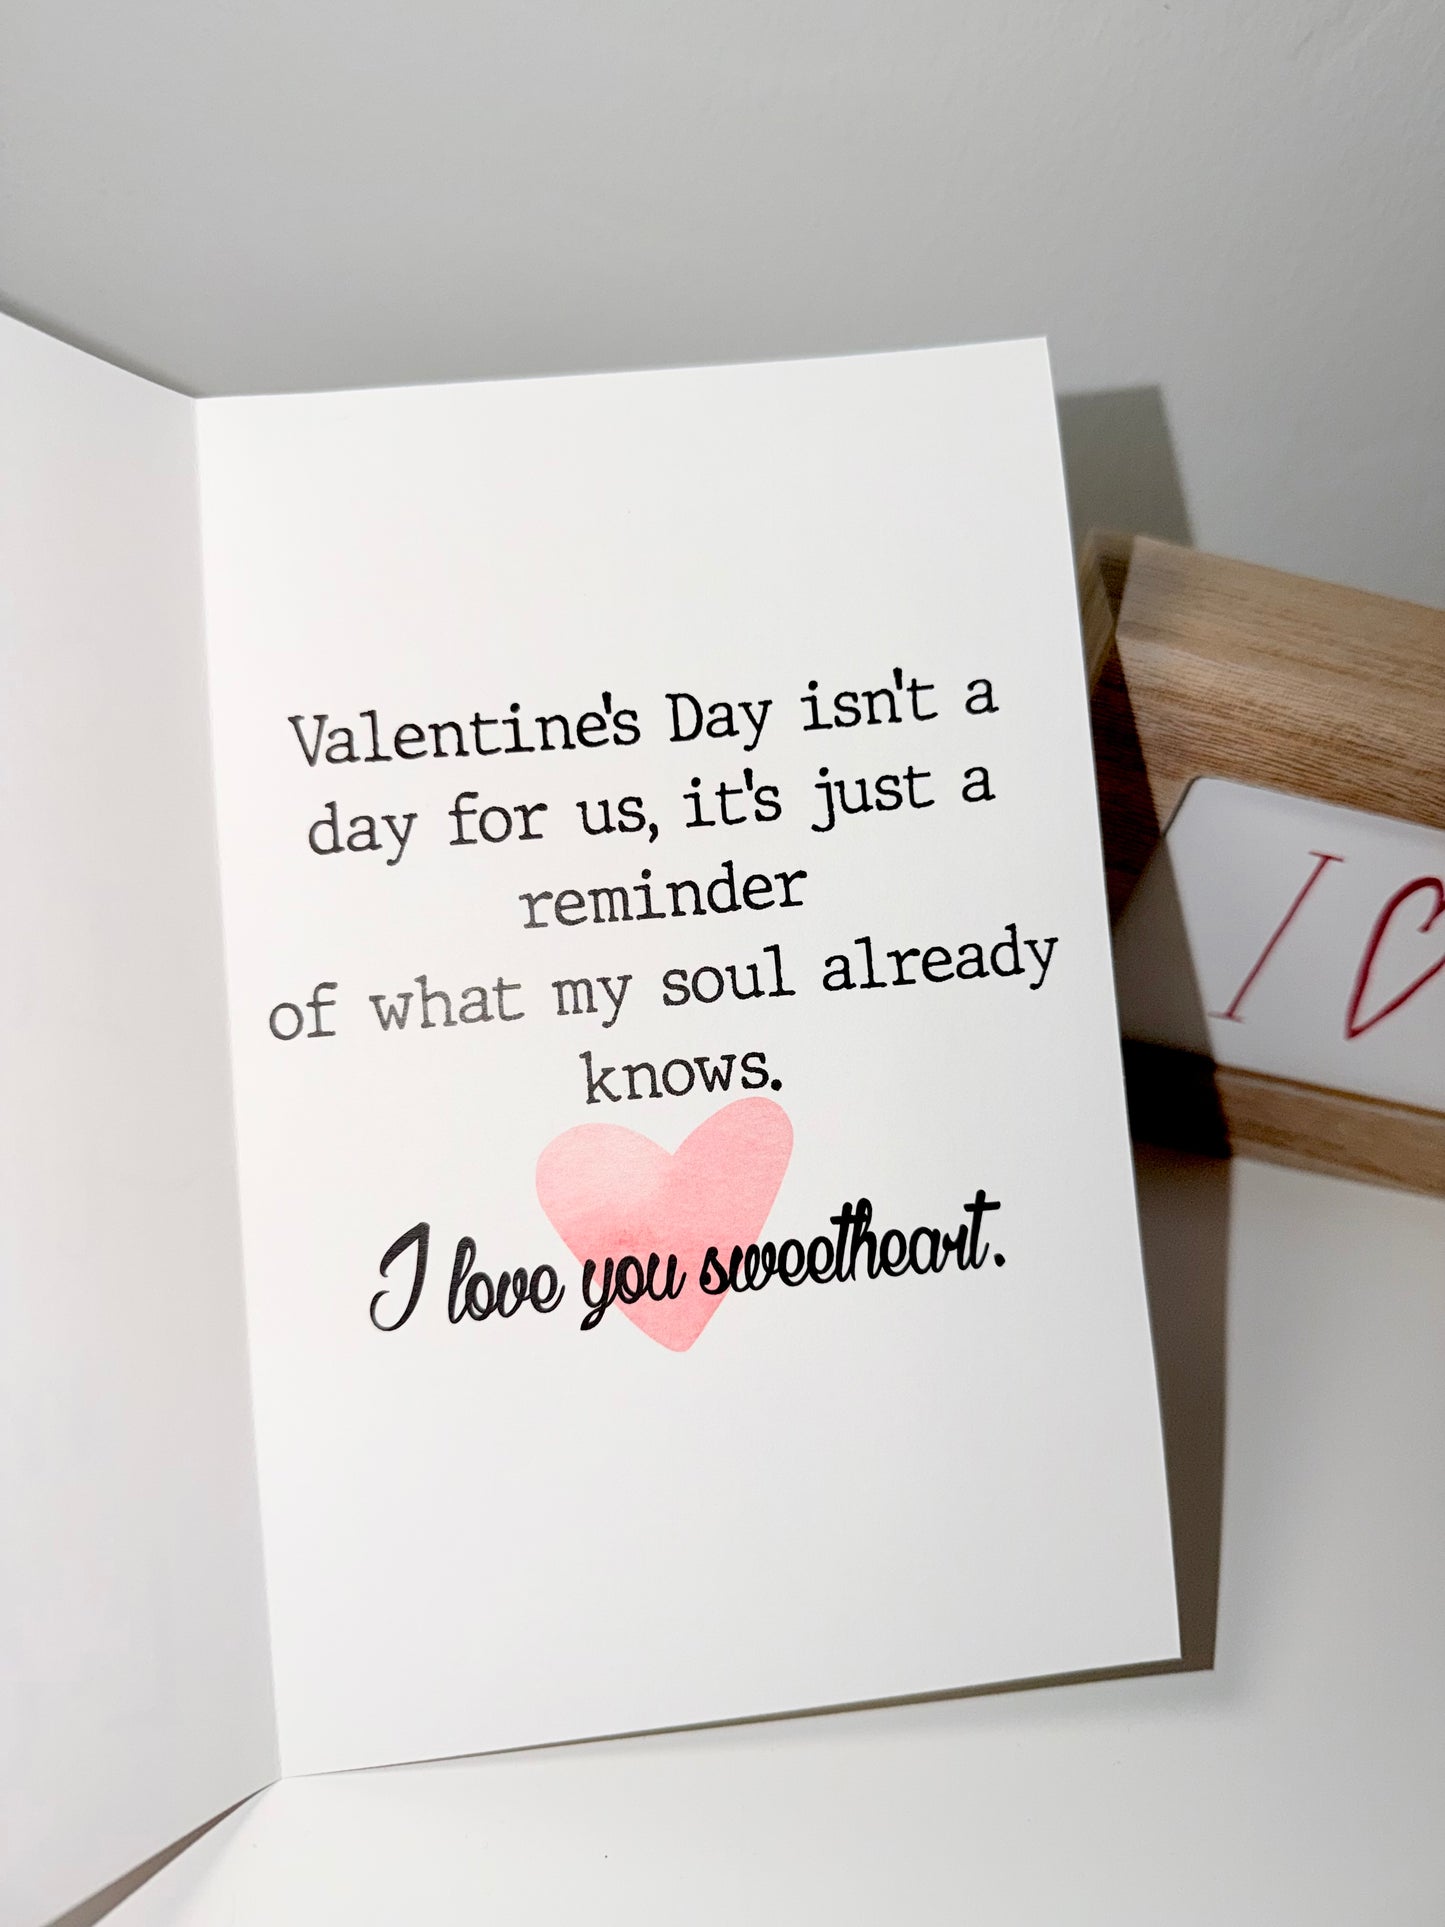 Valentine's Day isn't a
day for us, it's just a
reminder
of what my soul already
knows.
I love you sweetheart.
I